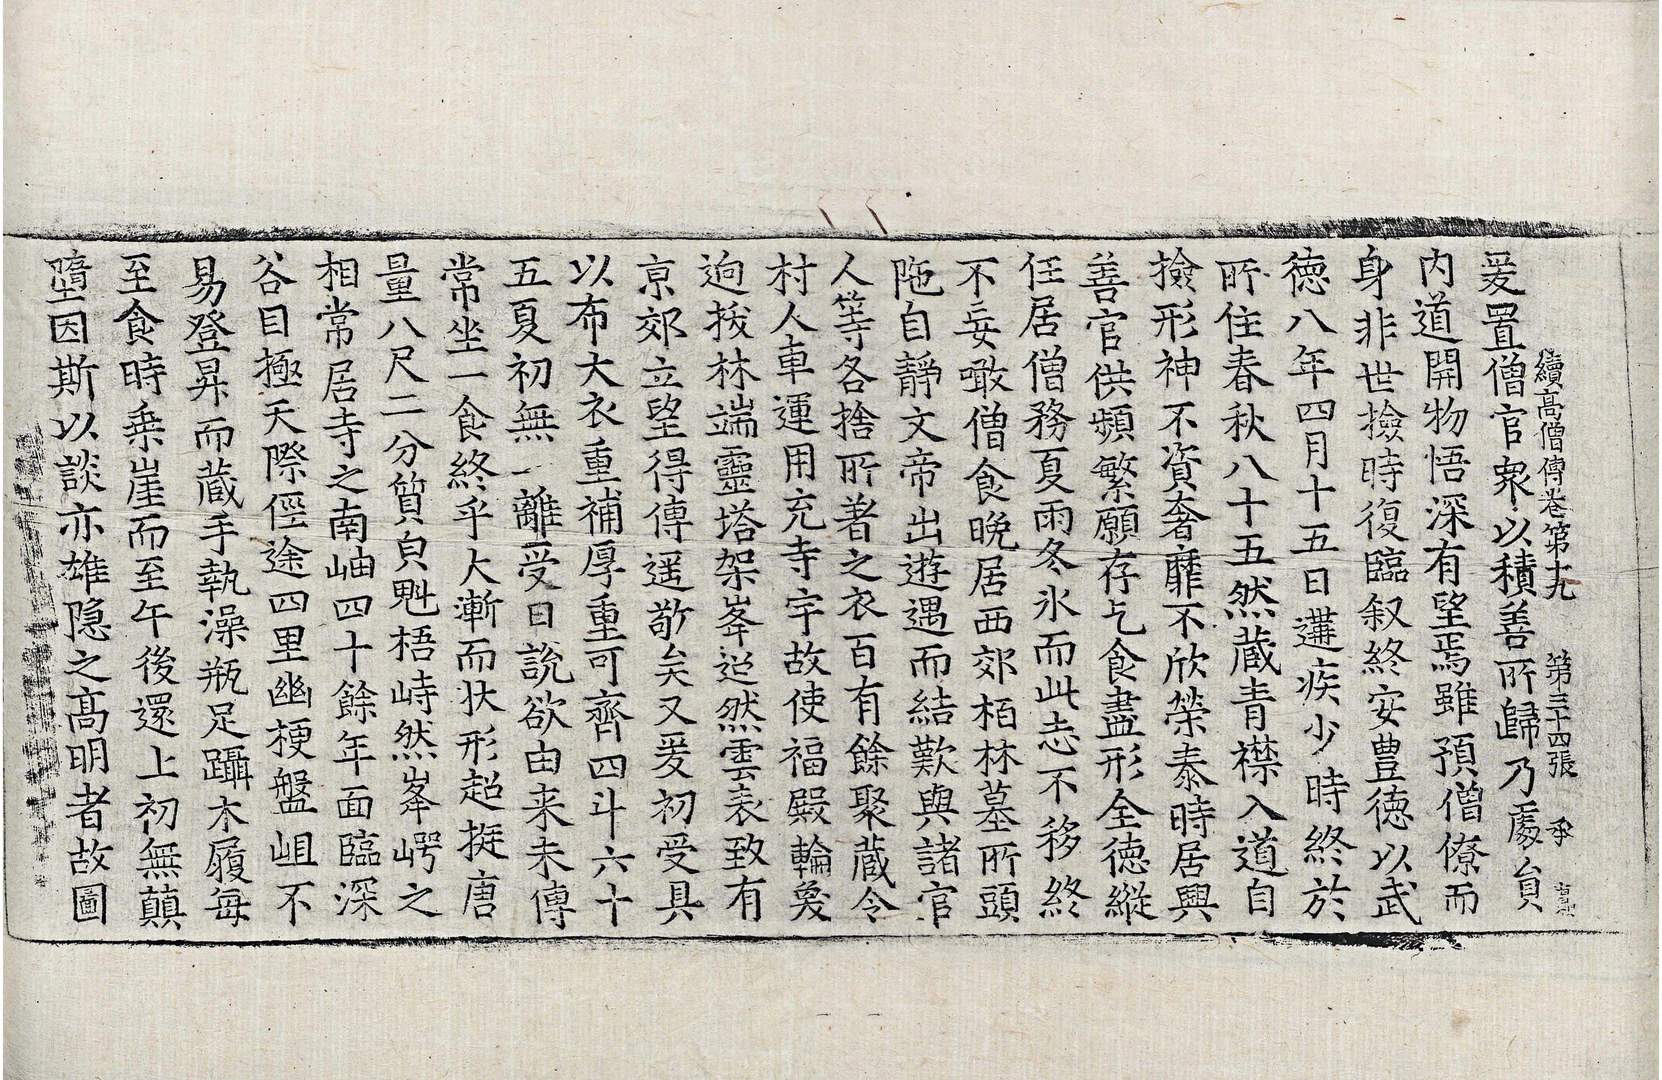 續高僧傳卷第十九　第三十四張　承
爰置僧官衆以積善所歸乃處貟
内道開物悟深有望焉雖預僧僚而
身非世撿時復臨叙終安豊德以武
德八年四月十五日遘疾少時終於
所住春秋八十五然藏青襟入道自
撿形神不資奢靡不欣榮泰時居興
善官供頻繁願存乞食盡形全德縱
任居僧務夏雨冬氷而此志不移終
不妄噉僧食晩居西郊栢林墓所頭
陁自靜文帝出遊遇而結歎與諸官
人等各捨所著之衣百有餘聚藏令
村人車運用充寺宇故使福殿輪奐
逈拔林端靈塔架峯迢然雲表致有
京郊立望得傳遥敬矣又爰初受具
以布大衣重補厚重可齊四斗六十
五夏初無一離受日說欲由来未傳
常坐一食終乎大漸而状形超挺唐
量八尺二分質皃魁梧峙然峯崿之
相常居寺之南岫四十餘年面臨深
谷目極天際俓途四里幽梗盤岨不
易登昇而藏手執澡瓶足躡木履每
至食時乗崖而至午後還上初無顛
墮因斯以談亦雄隐之高明者故圖